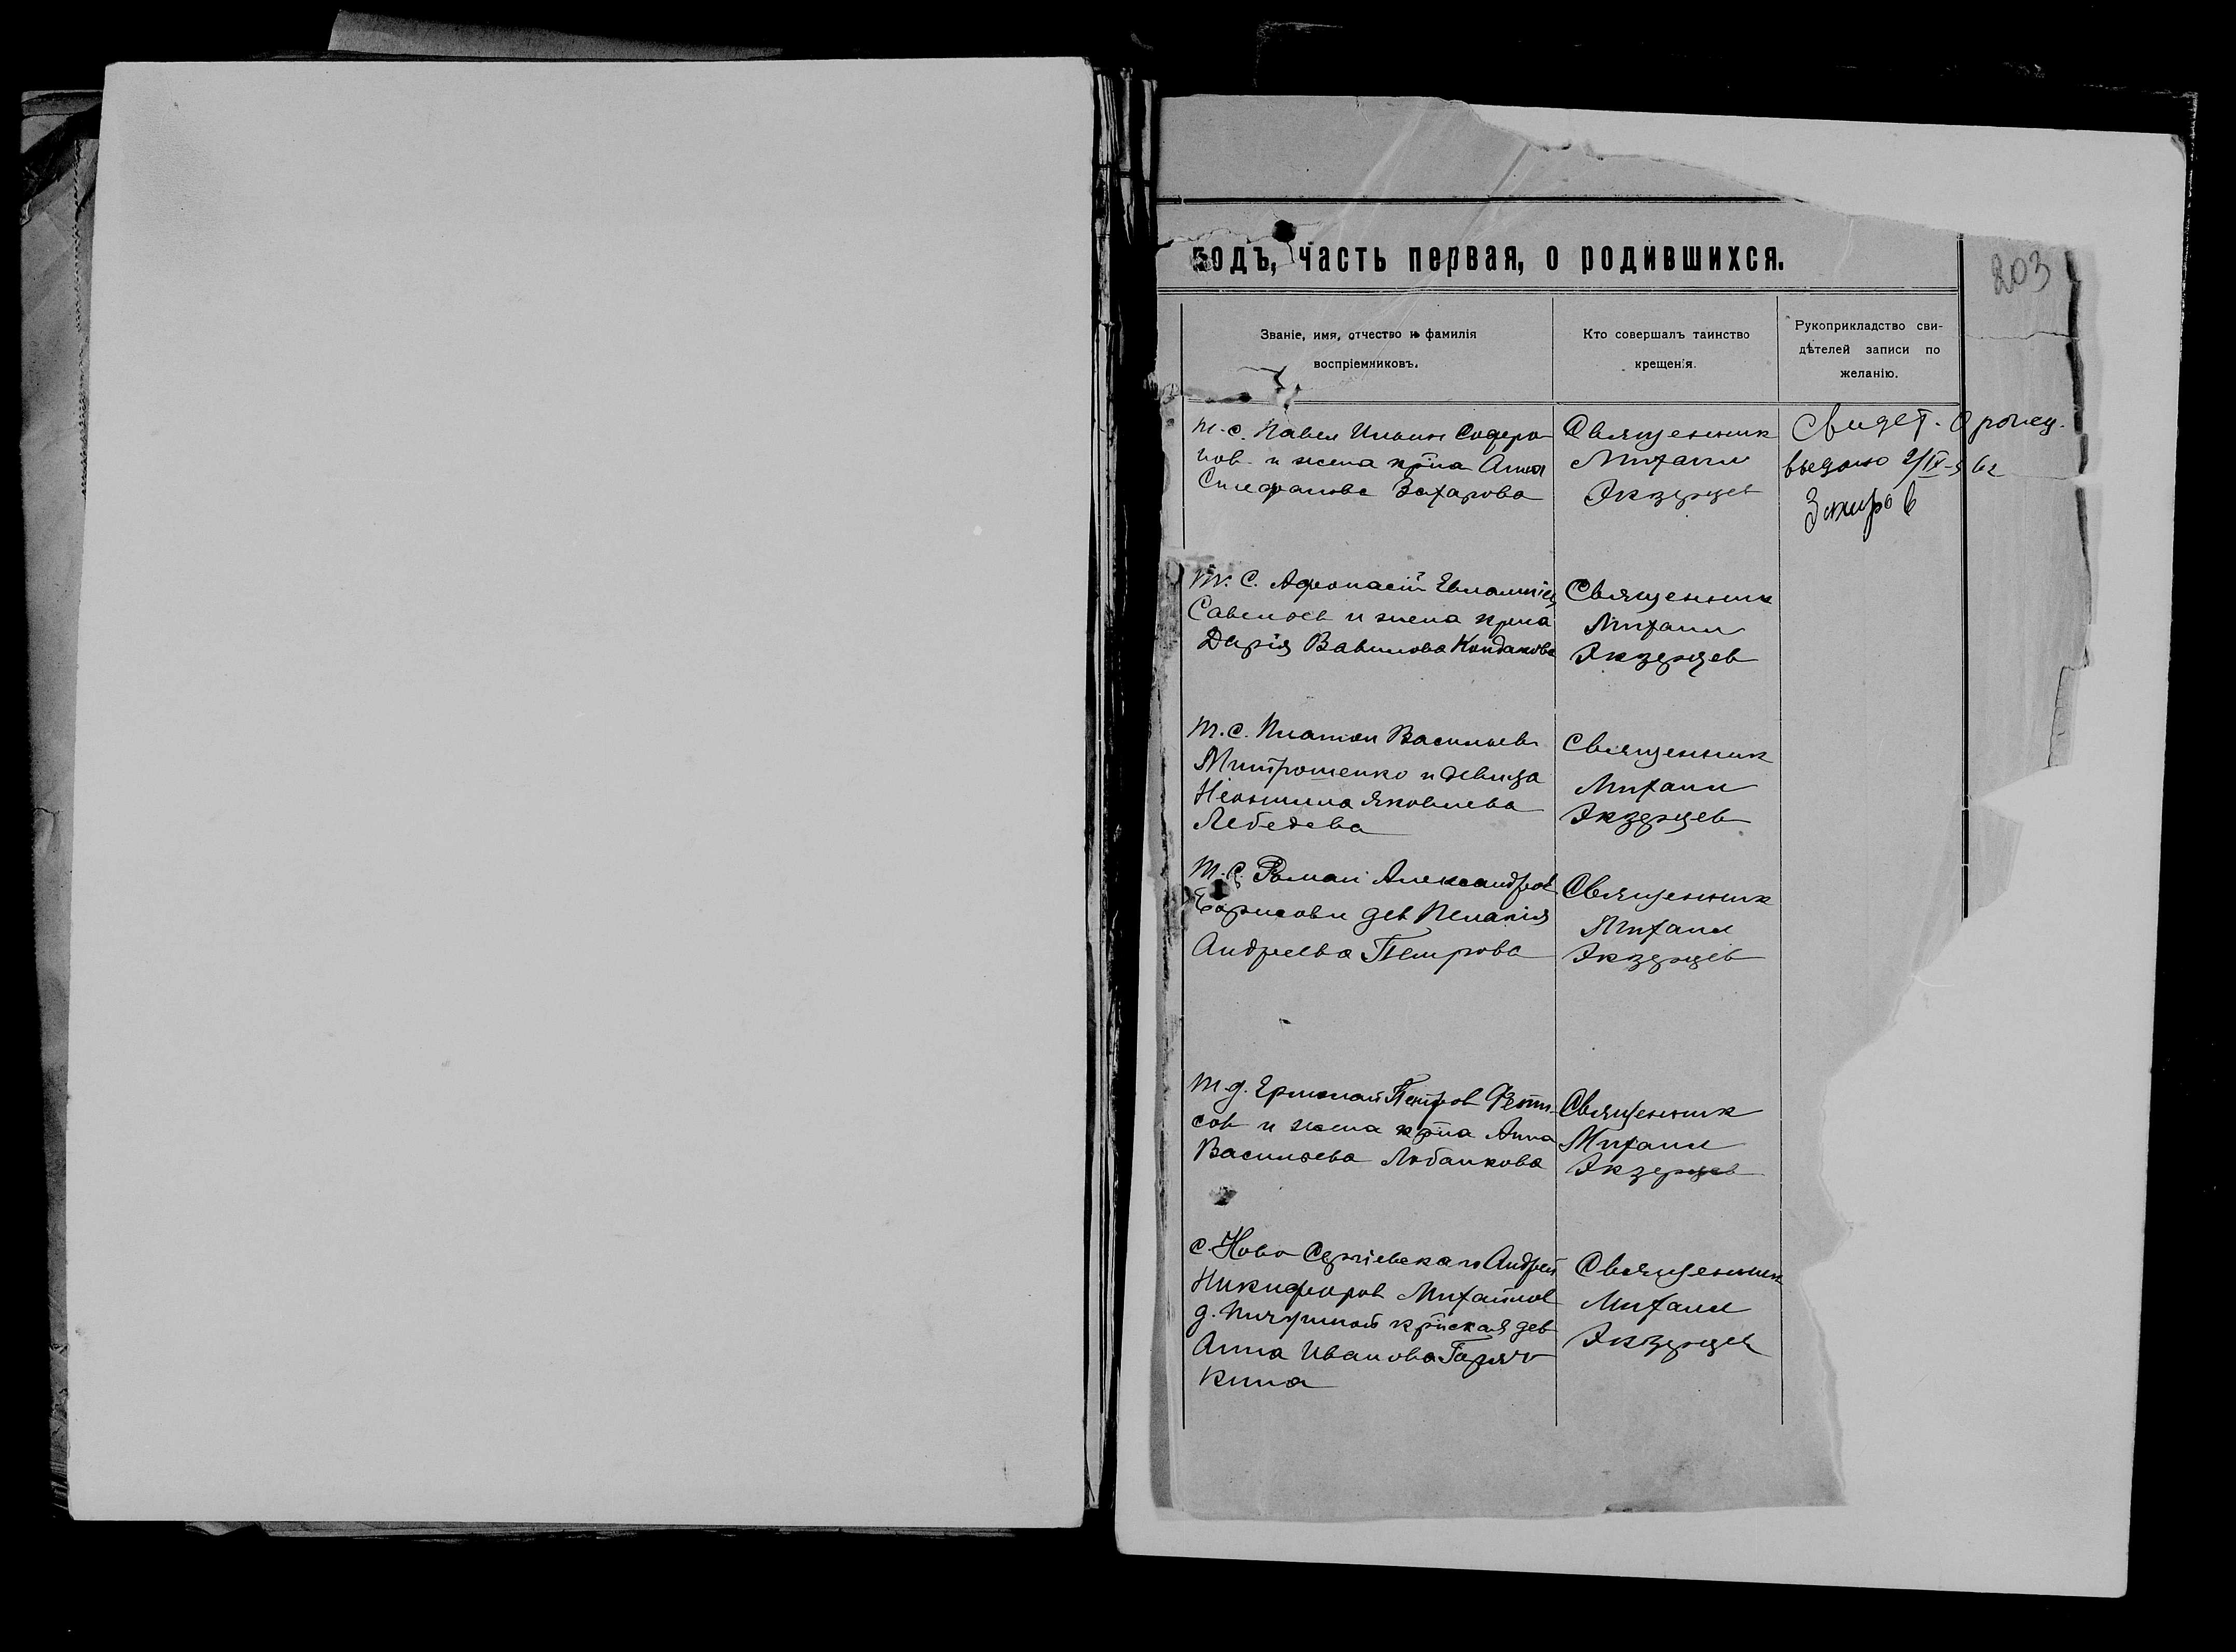 годъ, часть первая, о родившихся.
203
Званіе, имя, отчество и фамилія
воспріемниковъ.
Кто совершалъ таинство
крещенія.
Рукоприкладство сви-
дѣтелей записи по
желанію.
т. с. Павел Ильин Софро
нов и жена крпа Анна
Стефанова Захарова
Священник
Михаил
Экзерцев
Свидет. о рожд.
выдано 2/IX-
т. с. Афонасій
Савельев и жена крпа
Дарія Вавилова Кондакова
Священник
Михаил
Экзерцев
т. с. Платон Васильев
Митрошенко и девица
Неонила Яковлева
Лебедева
Священник
Михаил
Экзерцев
т. с. Роман Александров
Борисов и дев Пелагія
Андреева Петрова
Священник
Михаил
Экзерцев
т. д. Ермолай Петров Фети
сов и жена крпа Анна
Васильева Лобанкова
Священник
Михаил
Экзерцев
с. Ново Сергіевскаго Андрей
Никифоров Михайлов
д. крпская дев
Анна Иванова Горяч
кина
Священник
Михаил
Экзерцев